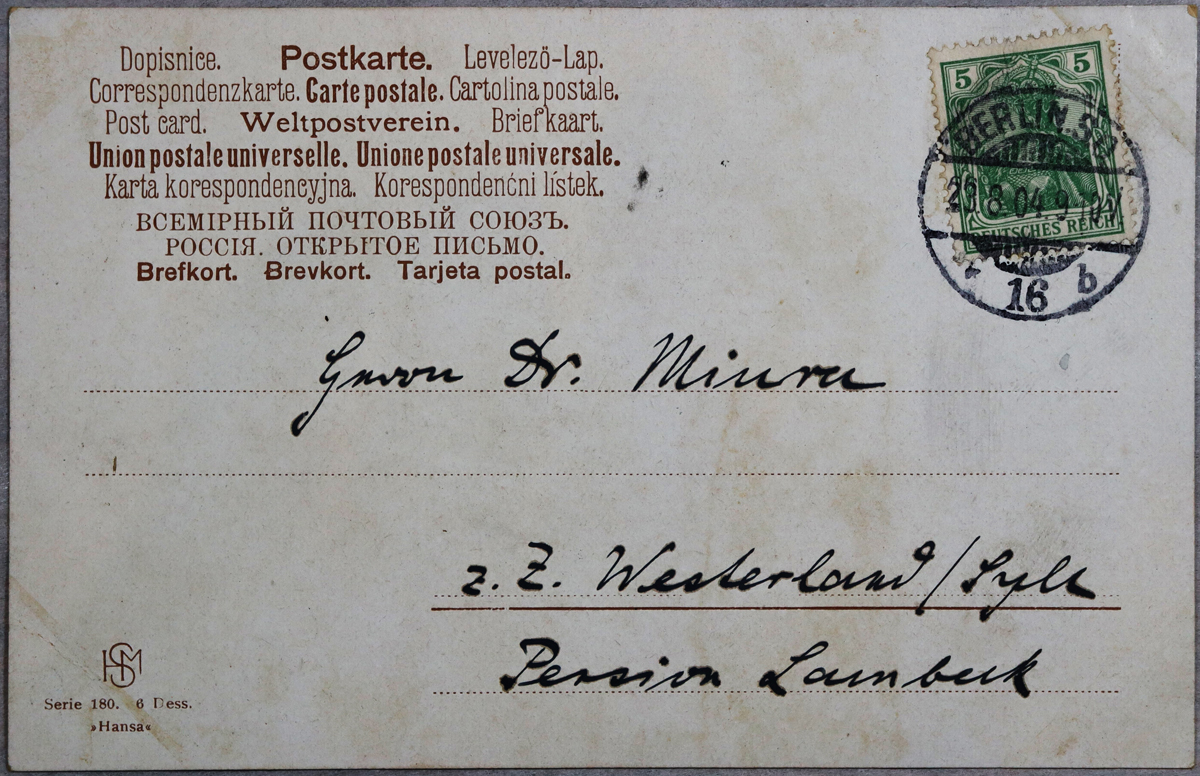 Dopisnice. Postkarte. Levelező-Lap.
Correspondenzkarte. Carte postale. Cartolina postale.
Post card. Weltpostverein. Briefkaart.
Union postale universelle. Unione postale universale.
Karta korespondencyjna. Korespondenćni lístek.
ВСЕМІРНЫЙ ПОЧТОВЫЙ СОЮЗЪ.
РОССІЯ. ОТКРЫТОЕ ПИСЬМО.
Brefkort. Brevkort. Tarjeta postal.
5 5
DEUTSCHES REICH
BERLIN.S.
8.04.9
16 b
Herrn Dr. Miura
z. Z. Westerland/Sylt
Pension Lambeck
HSM
Serie 180. 6 Dess.
»Hansa«